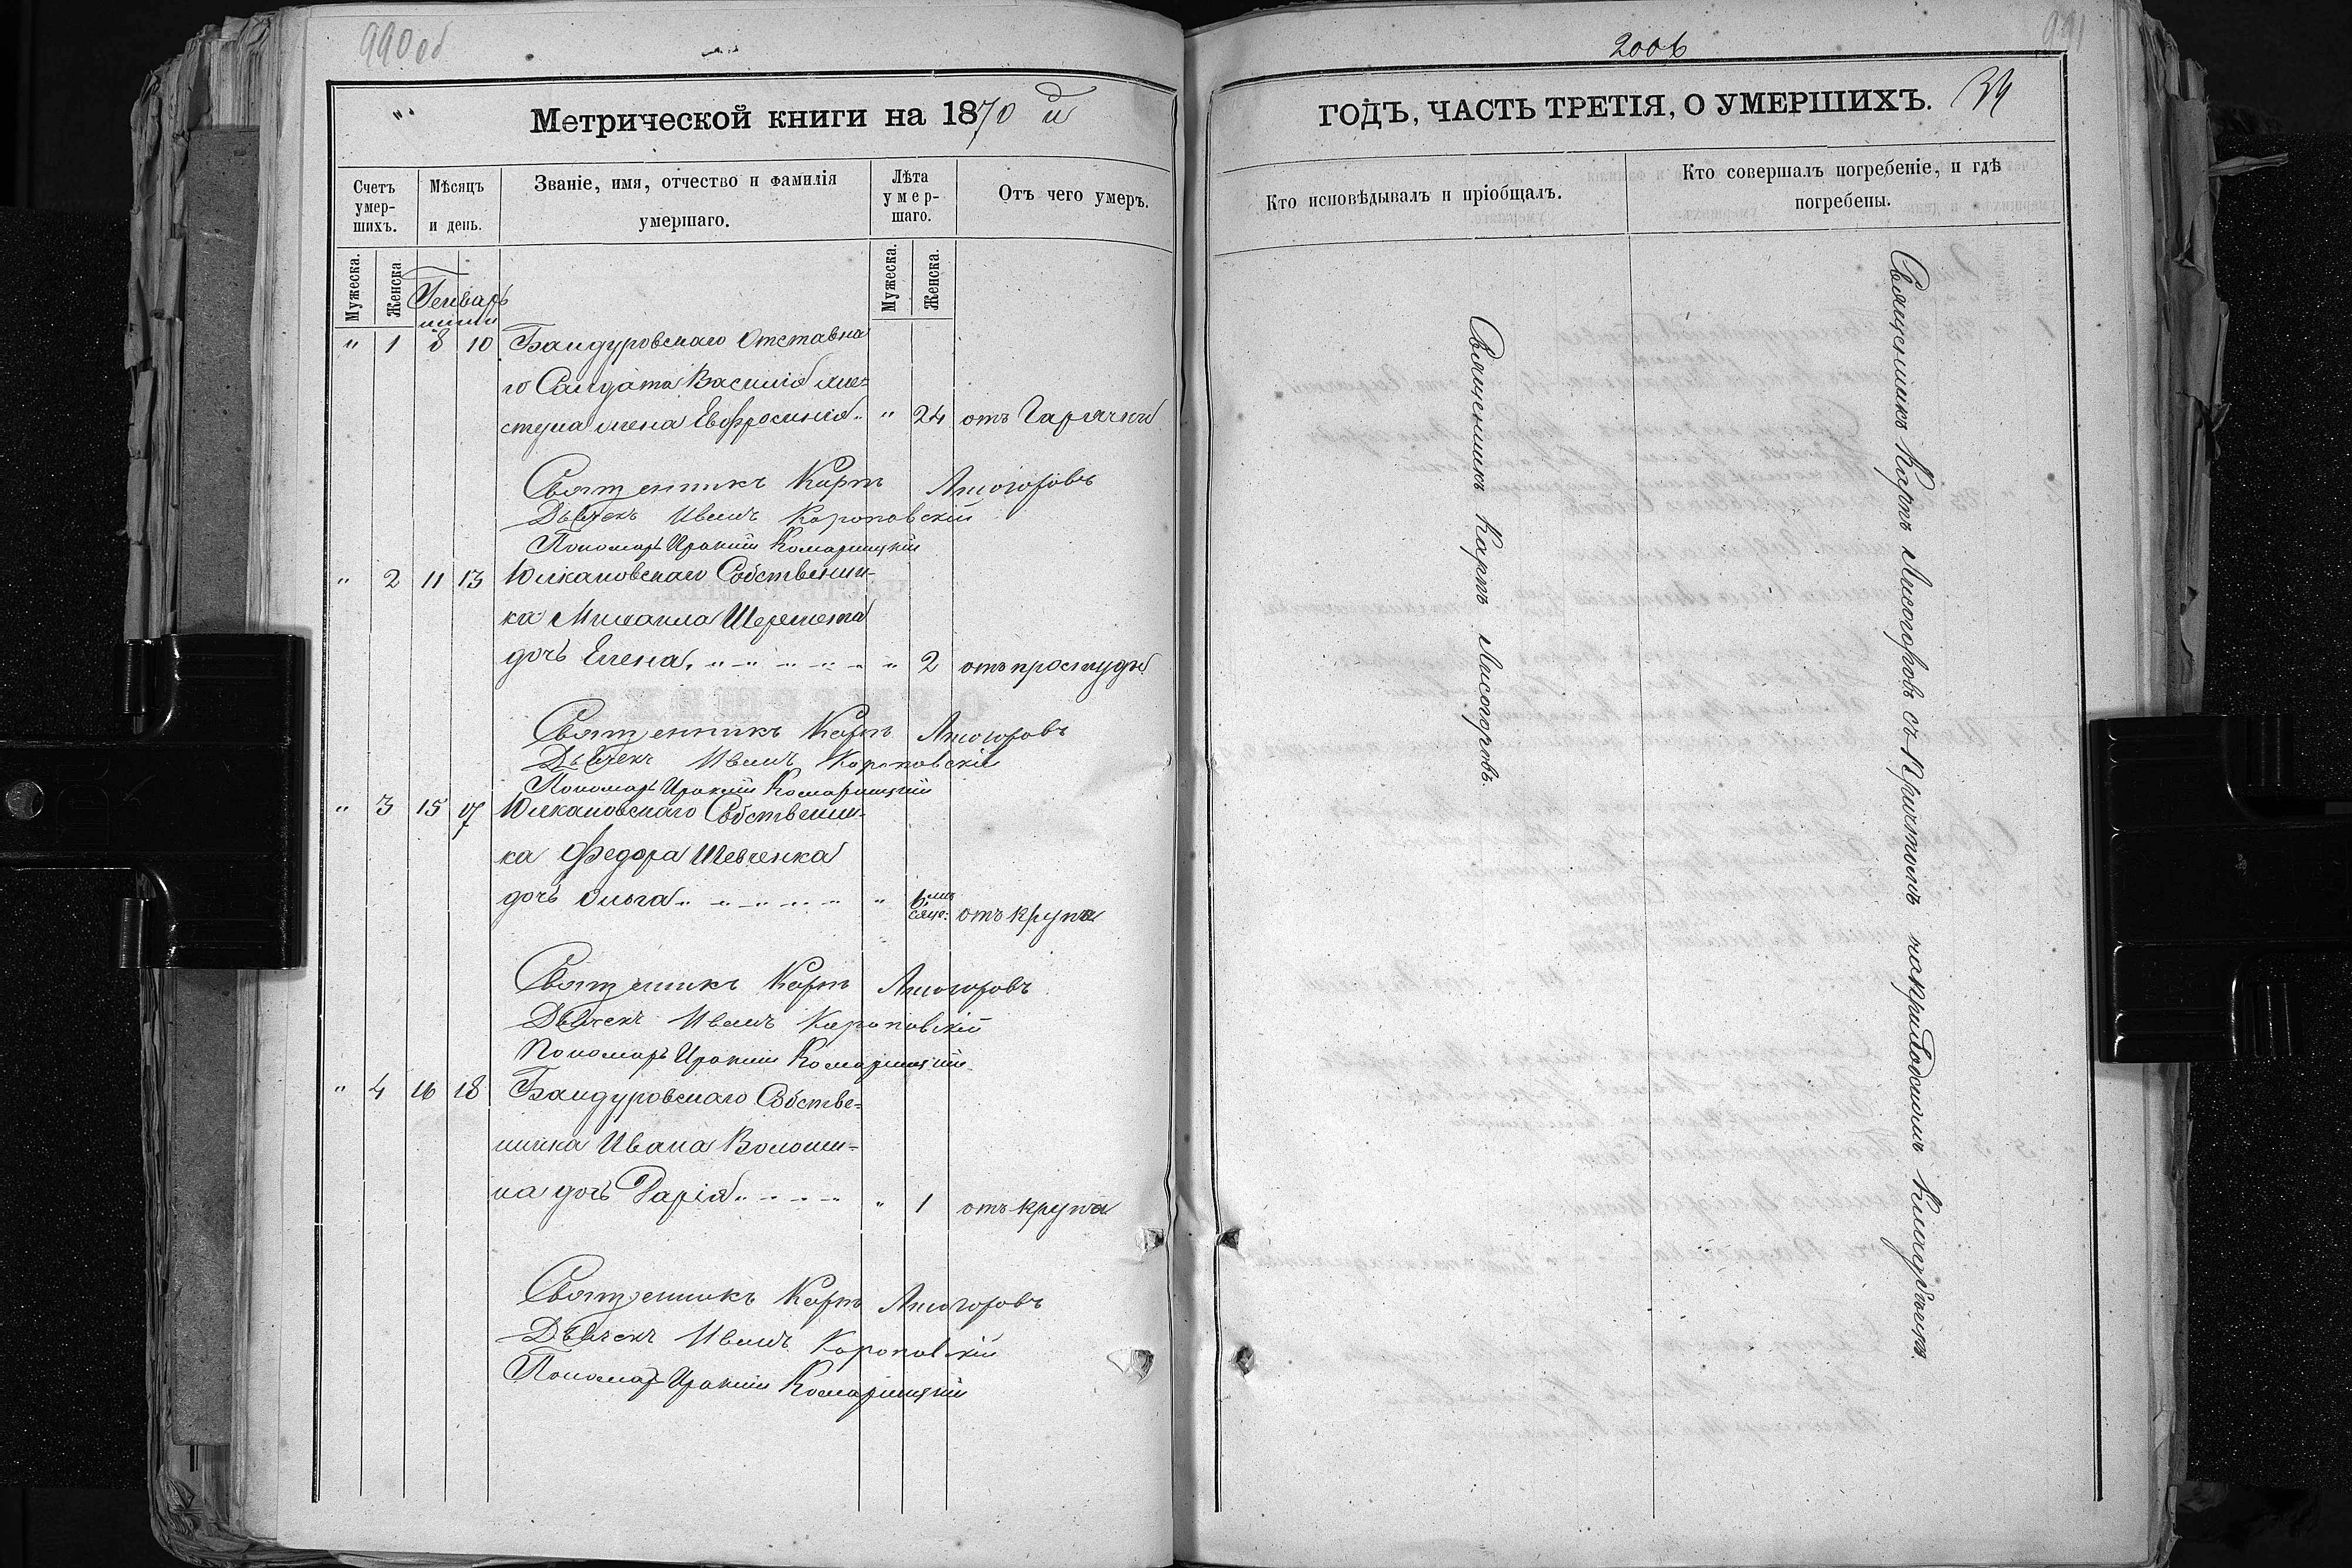 990об
Метрической книги на 1870 й
Счетъ умер-шихъ.
Мѣсяцъ и день.
Званіе, имя, отчество и фамилія умершаго.
Лѣта умер-шаго.
Отъ чего умеръ.
Мужеска.
Женска
Генварь
Мужеска.
Женска.
" 1 8 10 Бандуровскаго Отставна
го Салдата Василія
жена Евфросинія " 24 отъ Гарячки
Священникъ Карпъ Лисогоровъ
Дьячекъ Иванъ Короповскій
Пономарь Ираклій Комарицкій
" 2 11 13 Юзкановскаго Собственни-
ка Михаила Шеремета
дочь Елена " 2 отъ простуды
Священникъ Карпъ Лисогоровъ
Дьячекъ Иванъ Короповскій
Пономарь Ираклій Комарицкій
" 3 15 17 Юзкановскаго Собственни-
ка Федора Шевченка
дочь Ольга " 6 мѣ
сяц: отъ крупа
Священникъ Карпъ Лисогоровъ
Дьячекъ Иванъ Короповскій
Пономарь Ираклій Комарицкій
" 4 16 18 Бандуровскаго Собстве-
нника Ивана Волоши-
на дочь Дарія " 1 отъ крупа
Священникъ Карпъ Лисогоровъ
Дьячекъ Иванъ Короповскій
Пономарь Ираклій Комарицкій
2006
991
ГОДЪ, ЧАСТЬ ТРЕТІЯ, О УМЕРШИХЪ. 34
Кто исповѣдывалъ и пріобщалъ.
Кто совершалъ погребеніе, и гдѣ погребены.
Священникъ Карпъ Лисогоровъ.
Священникъ Карпъ Лисогоровъ съ Причтомъ на приходскомъ Кладбищѣ.